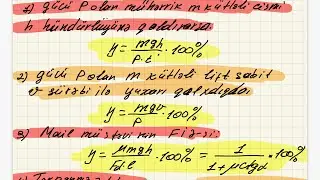 1) gücü P olan mühərrik m kütləli cismi
h hündürlüyünə qaldırarsa
y = mgh / P·t · 100%
2) gücü P olan m kütləli lift sabit
v sürəti ilə yuxarı qalxdıqda
y = mgv / P · 100%
3) Mail müstəvinin FİƏ-si:
y = μmgh / Fd·l · 100% = 1 / 1+μctgα · 100%